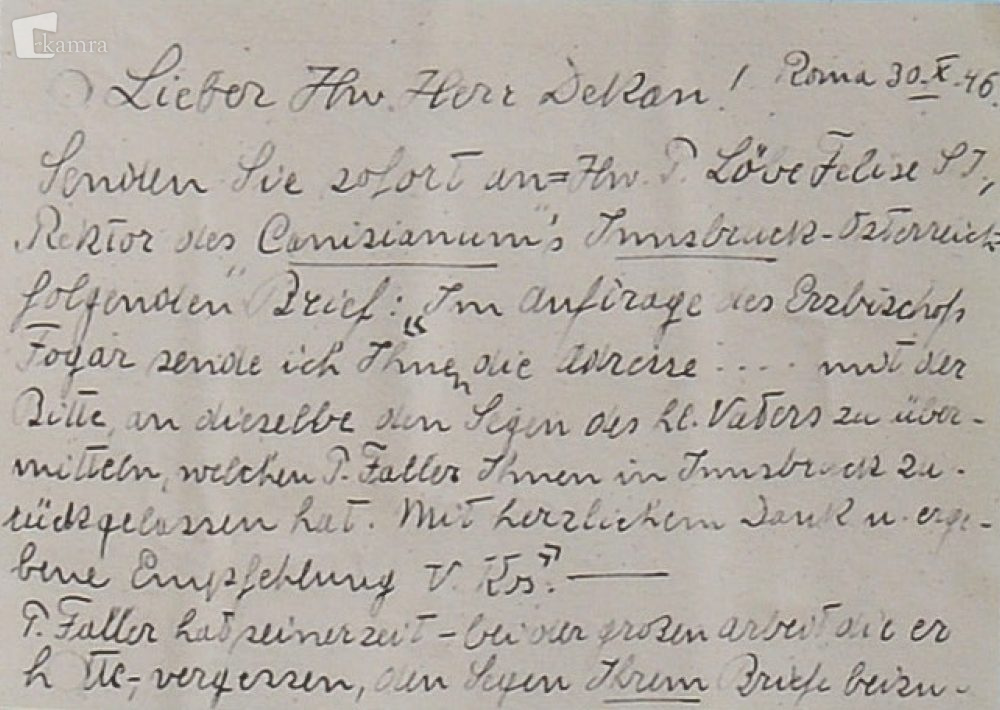 kamra
Lieber Hw. Herr Dekan! Roma 30.X.46.
Senden Sie sofort an = Hw. P. Löbe Felise S I.,
Rektor des Canisianum's Innsbruck-Österreich
folgenden Brief: "Im Auftrage des Erzbischofs
Fogar sende ich Ihnen die Adresse .... mit der
Bitte, an dieselbe den Segen des hl. Vaters zu über-
mitteln, welchen P. Faller Ihnen in Innsbruck zu-
rückgelassen hat. Mit herzlichem Dank u. erge-
bene Empfehlung V. —
P. Faller hat seinerzeit – bei der grosen Arbeit die er
h tte-, vergessen, den Segen Ihrem Briefe beizu-